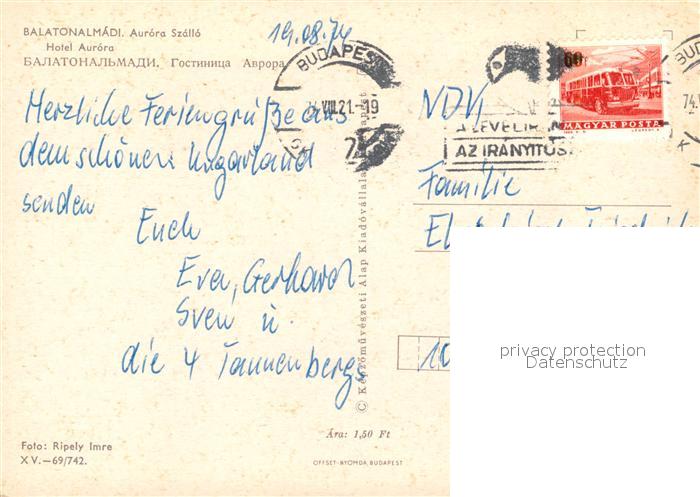 BALATONALMÁDI. Auróra Szálló
Hotel Auróra
БАЛАТОНАЛЬМАДИ. Гостиница Аврора
19.08.74
Herzliche Feriengrüße aus
dem schönen Ungarland
senden
Euch
Eva, Gerhard
Sven u.
die 4 Tannenbergs
Foto: Ripely Imre
XV.—69/742.
© Képzőművészeti Alap Kiadóvállalata, Budapest
Ára: 1,50 Ft
OFFSET-NYOMDA, BUDAPEST
BUDAPEST
VIII.21.-19
A LEVÉLIR
AZ IRÁNYÍTÓS
60
MAGYAR POSTA
BUD
74.V
Familie
10
privacy protection
Datenschutz